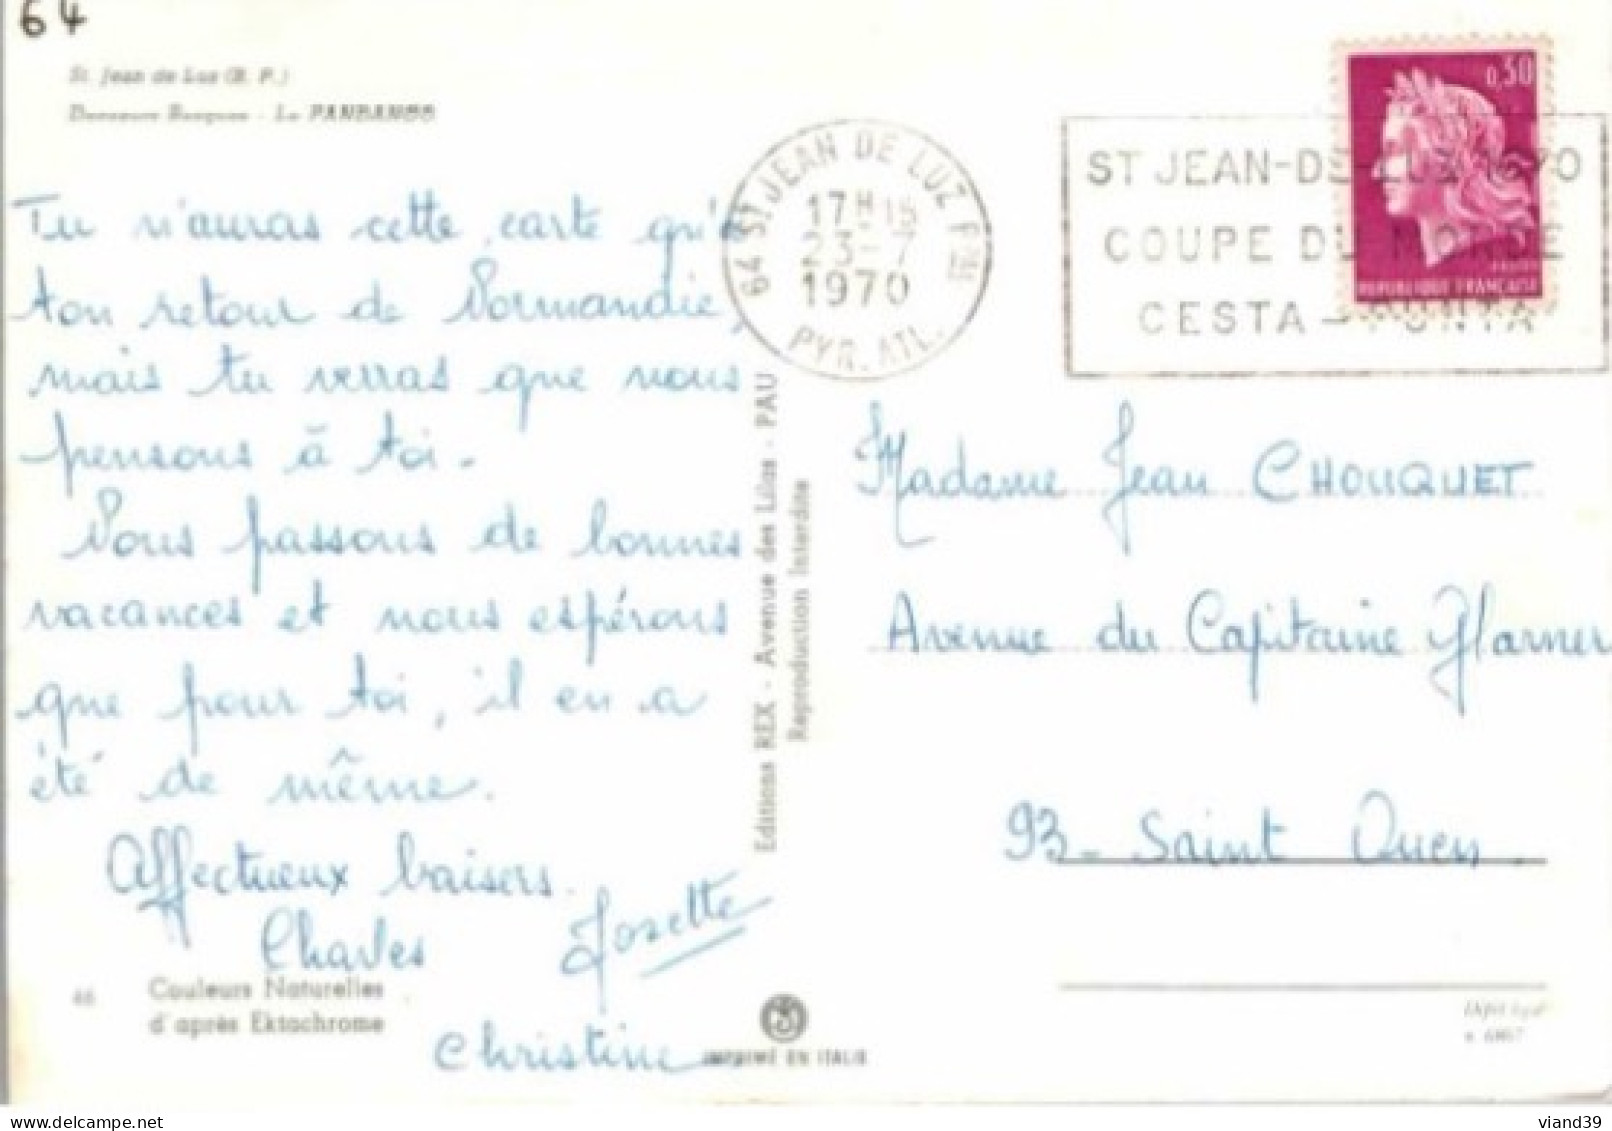 64
St. Jean de Luz (B. P.)
Danseurs Basques - Le FANDANGO
Tu n'auras cette carte qu'à
ton retour de Normandie,
mais tu verras que nous
pensons à toi.
Nous passons de bonnes
vacances et nous espérons
que pour toi, il en a
été de même.
Affectueux baisers.
Charles Josette
Christine
46
Couleurs Naturelles
d'après Ektachrome
Editions REX - Avenue des Lilas - PAU
Reproduction Interdite
IMPRIMÉ EN ITALIE
64 ST JEAN DE LUZ PPAL
17H15
23-7
1970
PYR. ATL.
ST JEAN-DE-LUZ 1970
COUPE DU MONDE
CESTA-PUNTA
0,30
REPUBLIQUE FRANÇAISE
Madame Jean CHOUQUET
Avenue du Capitaine Glarner
93- Saint Ouen.
Dépôt légal
viand39